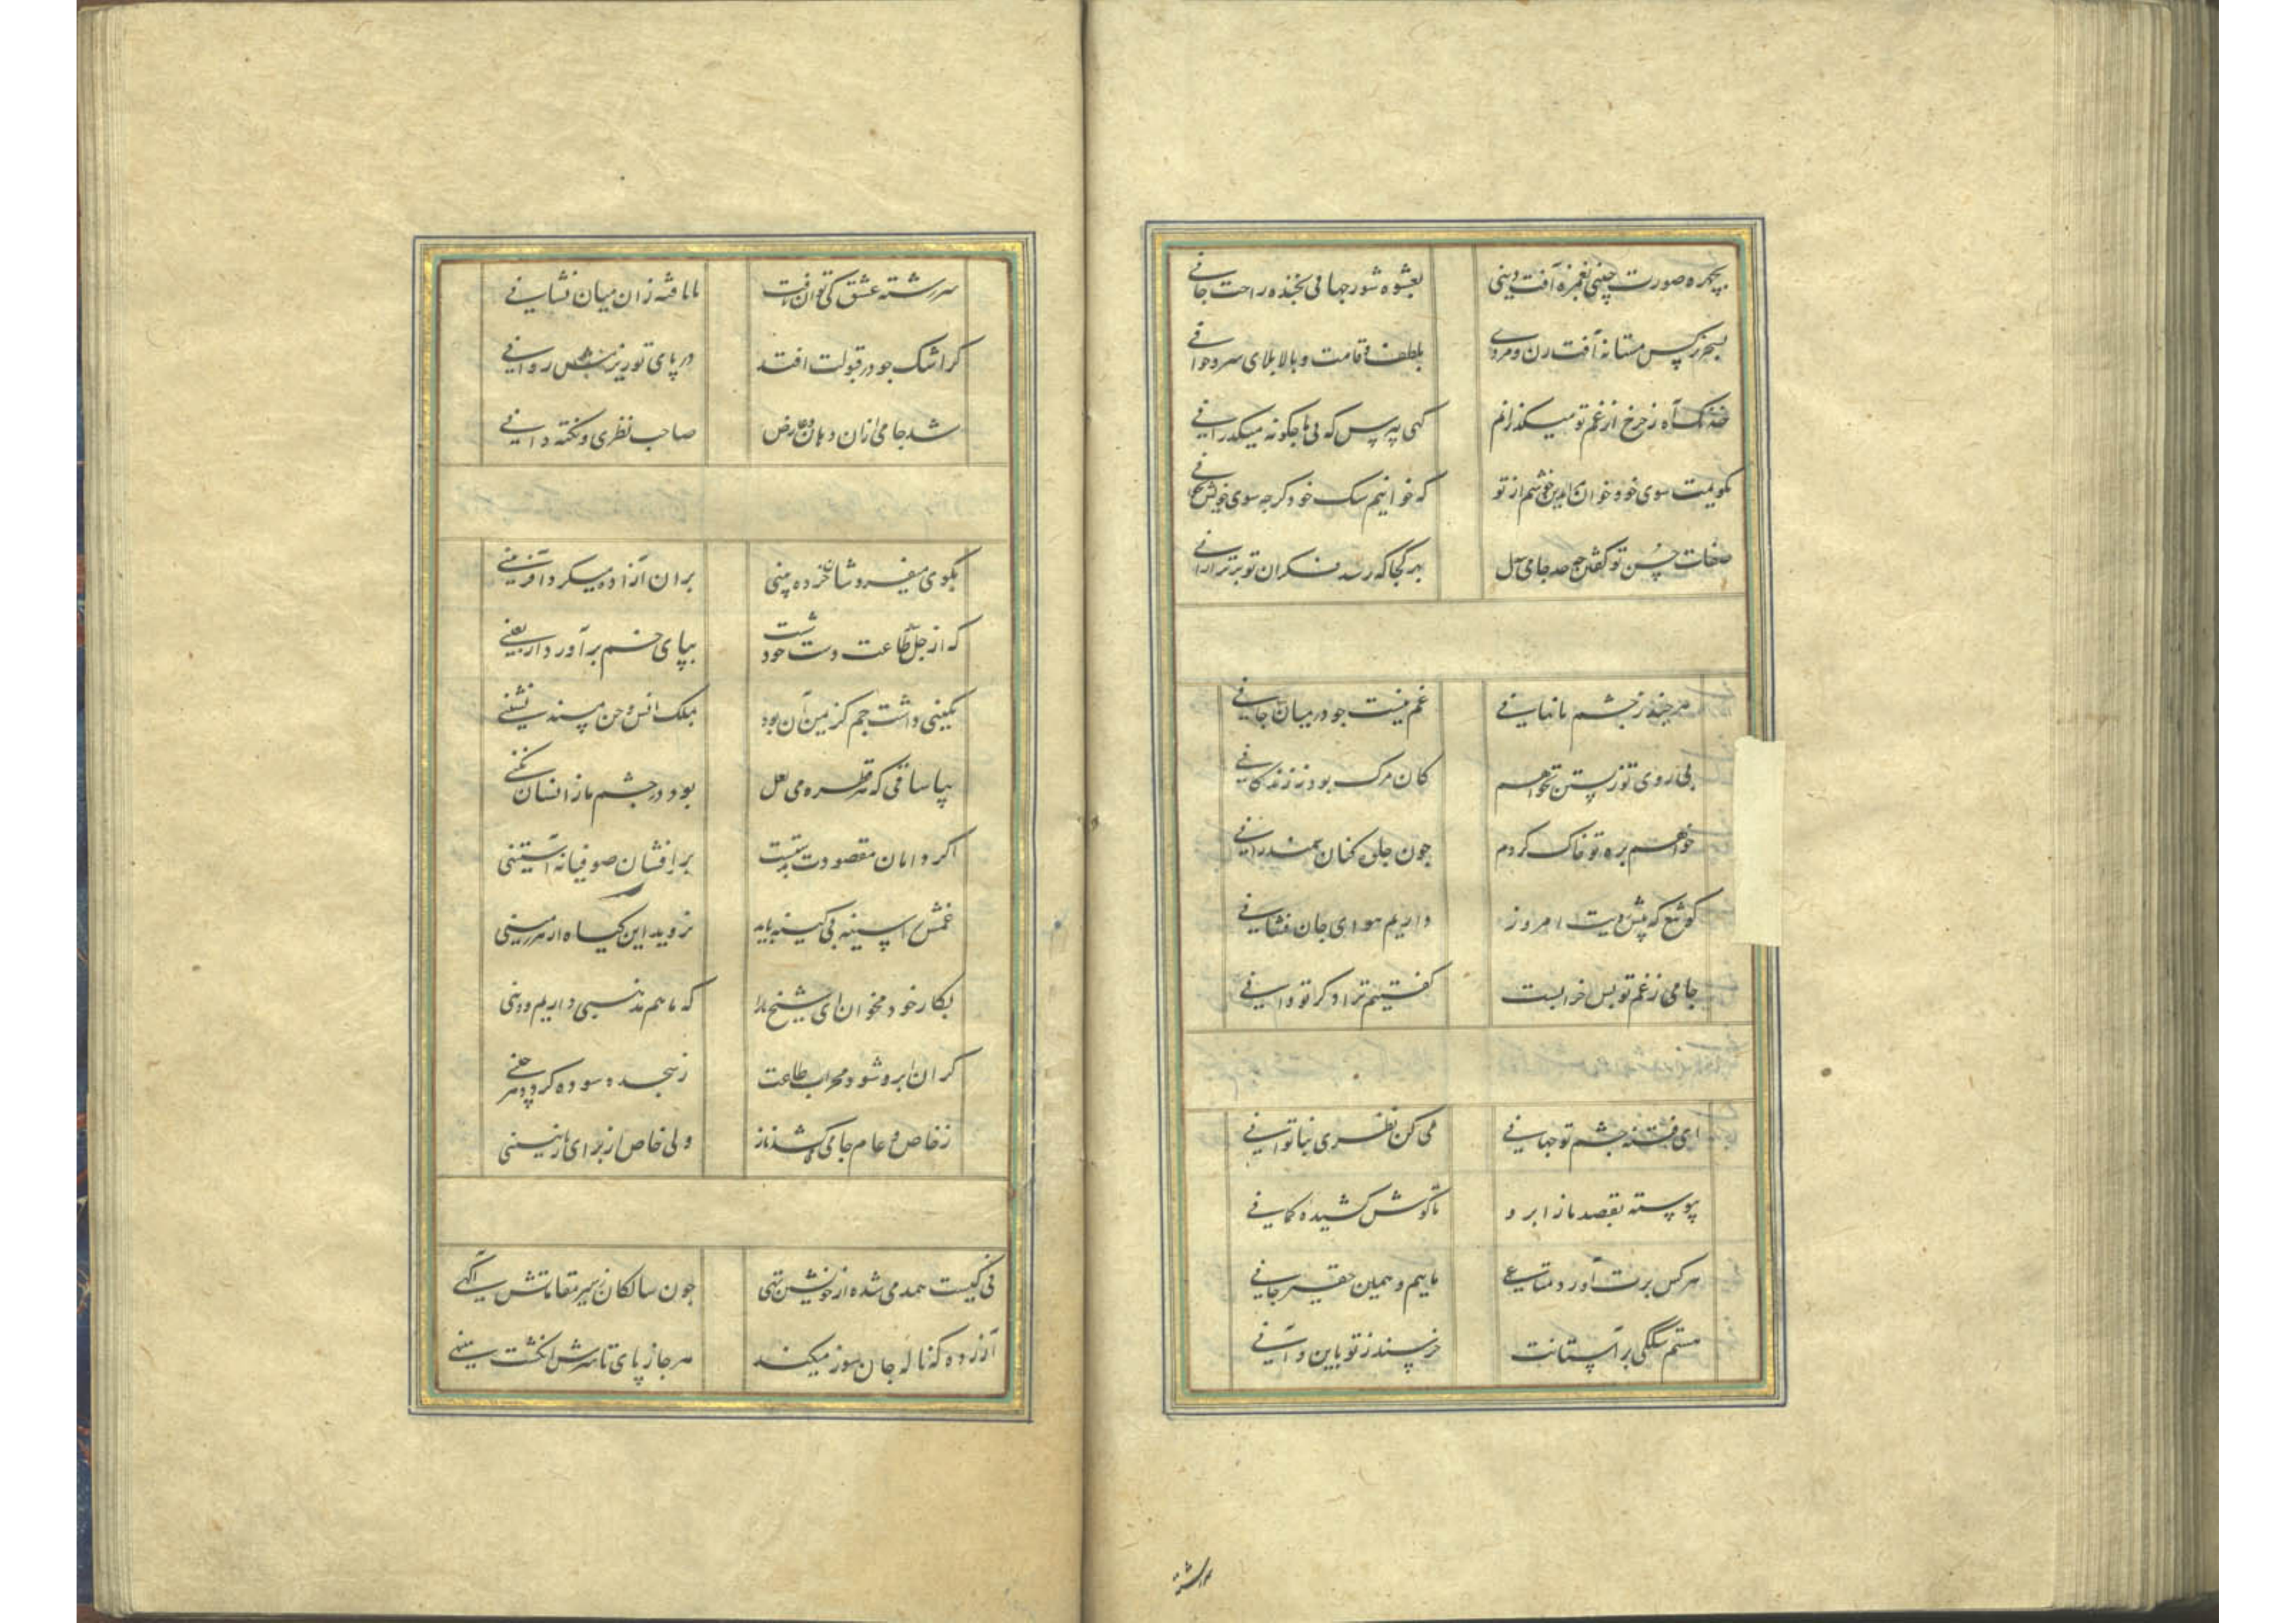 بچهره صورت چینی بغمزه آفت دینی بعشوه شور جهانی بخنده راحت جانی
بسحر نرکس مستانه آفت زن و مردی بلطف قامت و بالا بلای سر و جوانی
خدنک آه ز چرخ از غم تو میکذرانم کهی نپرسی که بی ما چکونه میکذرانی
نکویمت سوی خود خوان بدین خوشم از تو که خوانیم سک خود کرچه سوی خویش نخوانی
صفات حسن تو کفتن چه حد جامی بیدل بهر کجا که رسد فکر از آن تو برتر از آنی
هر چند ز چشم ما نهانی غم نیست چو در میان جانی
بی روی تو زیستن نخواهم کان مرک بود نه زندکانی
خواهم بره تو خاک کردم چون جلوه کنان سمند رانی
کو شمع که پیش رویت امروز داریم هوای جان فشانی
جامی ز غم تو بس خرابست کفتیم ترا دکر تو دانی
ای فتنه چشم تو جهانی می کن نظری بناتوانی
پیوسته بقصد ما ز ابرو تا کوش کشیده کمانی
هر کس برت آورد متاعی ماییم و همین حقیر جانی
هستم سککی بر آستانت خرسند ز تو باین و آنی
سررشته
سررشته عشق کی توان یافت نایافته زان میان نشانی
کر اشک چو در قبولت افتد در پای تو ریزمش روانی
شد جامی ازان دهان و عارض صاحب نظری و نکته دانی
بکوی میفروشان خرده بینی بران آزاده میکرد آفرینی
که از جل طاعت دست خود شست بپای خم برآورد اربعینی
نکینی داشت جم کز یمن آن بود بملک انس و جن مسند نشینی
بیا ساقی که هر قطره می لعل بود در چشم ما ز انسان نکینی
اکر دامان مقصودت بدستست برافشان صوفیانه آستینی
غمش را سینه بی کینه باید نروید این کیاه از هر زمینی
بکار خود مخوان ای شیخ ما را که ما هم مذهبی داریم و دینی
کر آن ابرو شود محراب طاعت ز سجده سوده کردد هر جبینی
ز خاص و عام جامی می کشد ناز ولی خاص از برای نازنینی
نی کیست همدمی شده از خویشتن تهی چون سالکان ز سیر مقاماتش آکهی
آزرده که ناله جان سوز میکند هر جا ز پای تا سرش انکشت مینهی